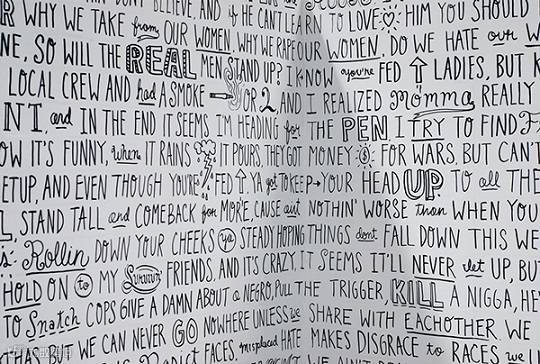 R WHY WE TAKE from OUR WOMEN, WHY WE RAPE OUR WOMEN. DO WE HATE our W
BELIEVE, AND if HE CAN'T LEARN TO LOVE HIM YOU SHOULD
NE, SO WILL THE REAL MEN STAND UP? I KNOW you're FED UP LADIES, BUT K
LOCAL CREW AND had A SMOKE OR 2, AND I REALIZED momma REALLY
NT, and IN THE END IT SEEMS I'M HEADING for THE PEN, I TRY TO FIND
OW IT'S FUNNY, when IT RAINS IT POURS, THEY GOT MONEY FOR WARS, BUT CAN'T
ETUP, AND EVEN THOUGH YOU'RE FED YA got TO KEEP YOUR HEAD UP. TO all THE
L, STAND TALL and COMEBACK for MORE, CAUSE aint NOTHIN' WORSE than WHEN YOU
s Rollin DOWN YOUR CHEEKS ya STEADY HOPING THINGS dont FALL DOWN THIS WE
HOLD ON to MY Survivin FRIENDS. AND IT'S CRAZY, IT SEEMS IT'LL NEVER let UP, BU
TO Snatch COPS GIVE A DAMN ABOUT a NEGRO, PULL THE TRIGGER, KILL A NIGGA, HE'
THAT WE CAN NEVER GO NOWHERE UNLESS we SHARE WITH EACHOTHER WE
FACES, misplaced HATE MAKES DISGRACE to RACES we